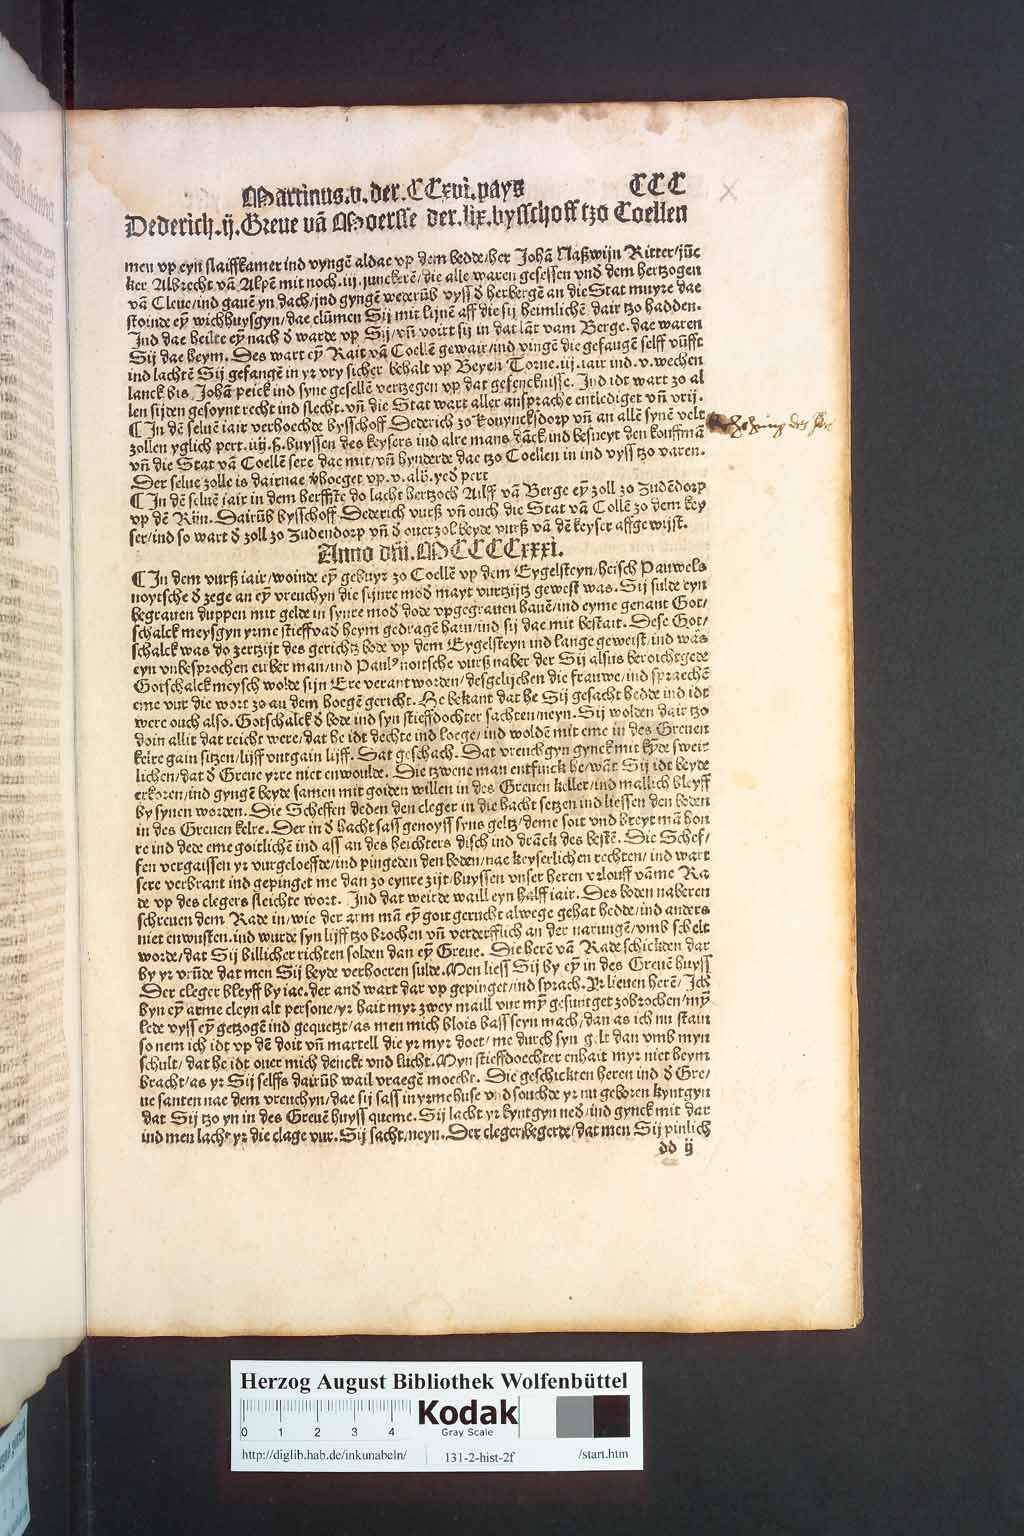 Martinus.v.der.CCxvi.pays CCC
Dederich.ij.Greue vā Moersse der.lix.bysschoff tzo Coellen
men vp eyn slaiffkamer ind vyngē aldae vp dem bedde/her Johā Naßwijn Ritter/jūc
ker Albrecht vā Alpē mit noch.iij.junckerē/die alle waren gesessen vnd dem hertzogen
vā Cleue/ind gauē yn dach/jnd gyngē wederūb vyss d herbergē an die Stat muyre dae
stoinde eȳ wichhuysgyn/dae clūmen Sij mit lijnē aff die sij heimlichē dair tzo hadden.
Ind dae heilte eȳ nach d warde vp Sij/vn̄ voirt sij in dat lāt vam Berge.dae waren
Sij dae heym. Des wart eȳ Rait vā Coellē gewair/ind vingē die gefangē selff vūfft
ind lachtē Sij gefangē in yr vry sicher behalt vp Beyen Torne.iij.iair ind.v.wechen
lanck bis Johā peick ind syne gesellē vertzegen vp dat gefencknisse. Ind idt wart zo al
len sijden gesoynt recht ind slecht.vn̄ die Stat wart aller ansprache entlediget vn̄ vrij.
¶ In dē seluē iair verhoechde bysschoff Dederich zo Kouyncksdorp vn̄ an allē synē velt
zollen yglich pert.iiij.ß.buyssen des keysers ind alre mans dāck ind besweyt den kouffmā
vn̄ die Stat vā Coellē sere dae mit/vn̄ hynderde dae tzo Coellen in ind vyss tzo varen.
Der selue zolle is dairnae vhoeget vp.v.alb.yed pert
¶ In dē seluē iair in dem herffste do lacht hertzoch Ailff vā Berge eȳ zoll zo Zudēdorp
vp dē Rijn. Dairūb bysschoff Dederich vurß vn̄ ouch die Stat vā Collē zo dem key
ser/ind so wart d zoll zo Zudendorp vn̄ d ouerzol beyde vurß vā dē keyser affgewijst.
Anno dn̄i.MCCCCxxxi.
¶ In dem vurß iair/woinde eȳ gebuyr zo Coellē vp dem Eygelsteyn/heisch Pauwels
noytsche d zege an eȳ vreuchyn die sijnre mod mayt vurtzijtz gewest was. Sij sulde eyn
begrauen duppen mit gelde in synre mod dode vpgegrauen hauē/ind eyme genant Got/
schalck meysgyn yrme stieffvad heym gedragē hain/ind sij dae mit bestait. Dese Got/
schalck was do zertzijt des gerichtz bode vp dem Eygelsteyn ind lange geweist ind was
eyn vnbesprochen eirber man/ind Paulꝰ noitsche vurß naber der Sij alsus beroichtgede
Gotschalck meysch wolde sijn Ere verantworden/desgelijchen die frauwe/ind spraechē
eme vur die wort zo an dem hoegē gericht. He bekant dat he Sij gesacht hedde ind idt
were ouch also. Gotschalck d bode ind syn stieffdochter sachten/neyn. Sij wolden dair tzo
doin allit dat reicht were/dat he idt dechte ind loege/ind woldē mit eme in des Greuen
kelre gain sitzen/lijff vntgain lijff. Dat geschach. Dat vreuchgyn gynck mit kȳde sweir
lichen/dat d Greue yrre niet enwoulde. Die tzwene man entfinck he/wāt Sij idt beyde
erkoren/ind gyngē beyde samen mit goiden willen in des Greuen keller/ind mallich bleyff
by synen worden. Die Scheffen deden den cleger in die hacht setzen ind liessen den boden
in des Greuen kelre. Der in d hacht sass genoyss syns geltz/deme soit vnd breyt mā hon
re ind dede eme goitlichē ind ass an des heichters disch ind drāck des bestē. Die Schef/
fen vergaissen yr vurgeloeffde/ind pingeden den boden/nae keyserlichen rechten/ind wart
sere verbrant ind gepinget me dan zo eynre zijt/buyssen vnser heren vrlouff vāme Ra
de vp des clegers sleichte wort. Ind dat weirde waill eyn halff iair. Des boden naberen
schreuen dem Rade in/wie der arm mā eȳ goit gerucht alwege gehat hedde/ind anders
niet enwusten.ind wurde syn lijff tzo brochen vn̄ verderfflich an der narungē/vmb schelt
worde/dat Sij billicher richten solden dan eȳ Greue. Die herē vā Rade schickden dar
by yr vrūde dat men Sij beyde verhoeren sulde.Men liess Sij by eȳ in des Greuē huyss
Der cleger bleyff by iae.der and wart dar vp gepinget/ind sprach. Yr lieuen herē/Ich
byn eȳ arme cleyn alt persone/yr hait myr zwey maill vur mȳ gesuntget zobrochen/mȳ
lede vyss eȳ getzogē ind gequetzt/as men mich blois bass seyn mach/dan as ich nu stain
so nem ich idt vp dē doit vn̄ martell die yr myr doet/me durch syn gelt dan vmb myn
schult/dat he idt ouer mich denckt vnd lucht.Myn stieffdoechter enhait myr niet heym
bracht/as yr Sij selffs dairūb wail vraegē moecht. Die geschickten heren ind d Gre/
ue santen nae dem vreuchyn/dae sij sass in yrme huse vnd souchde yr nu geboren kyntgyn
dat Sij tzo yn in des Greuē huyss queme. Sij lacht yr kyntgyn ned/ind gynck mit dar
ind men lacht yr die clage vur. Sij sacht/neyn. Der cleger begerde/dat men Sij pinlich
dd ij
Herzog August Bibliothek Wolfenbüttel
0 1 2 3 4
Kodak
Gray Scale
http://diglib.hab.de/inkunabeln/ 131-2-hist-2f /start.htm